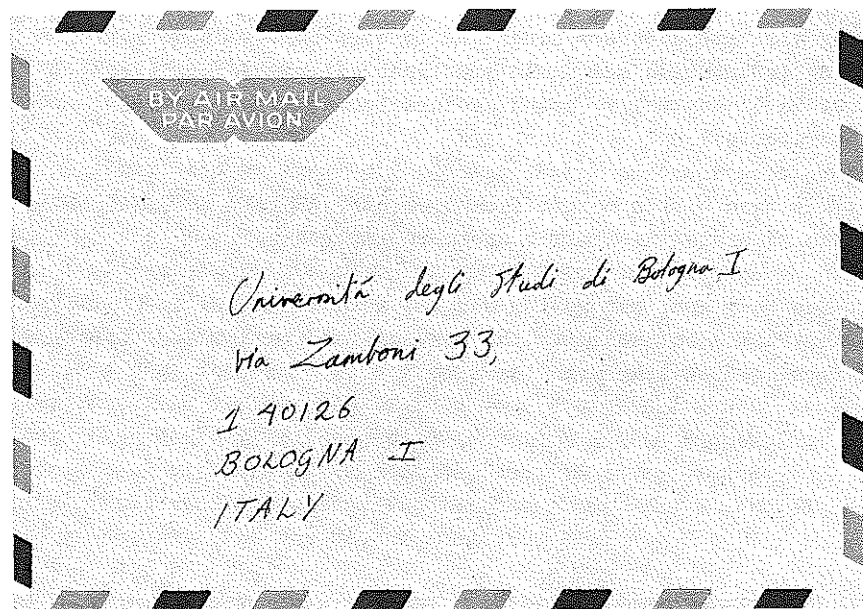 BY AIR MAIL
PAR AVION
Università degli Studi di Bologna I
via Zamboni 33,
1 40126
BOLOGNA I
ITALY